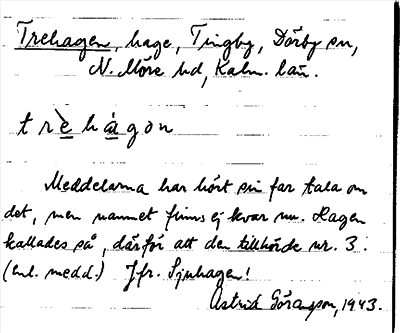 Trehagen, hage, Tingby, Dörby sn,
N. Möre hd, Kalm. län.
trèhàgon
Meddelarna har hört sin far tala om
det, men namnet finns ej kvar nu. Hagen
kallades så, därför att den tillhörde nr. 3.
(enl. medd.) Jfr. Sjuhagen!
Astrid Göransson, 1943.